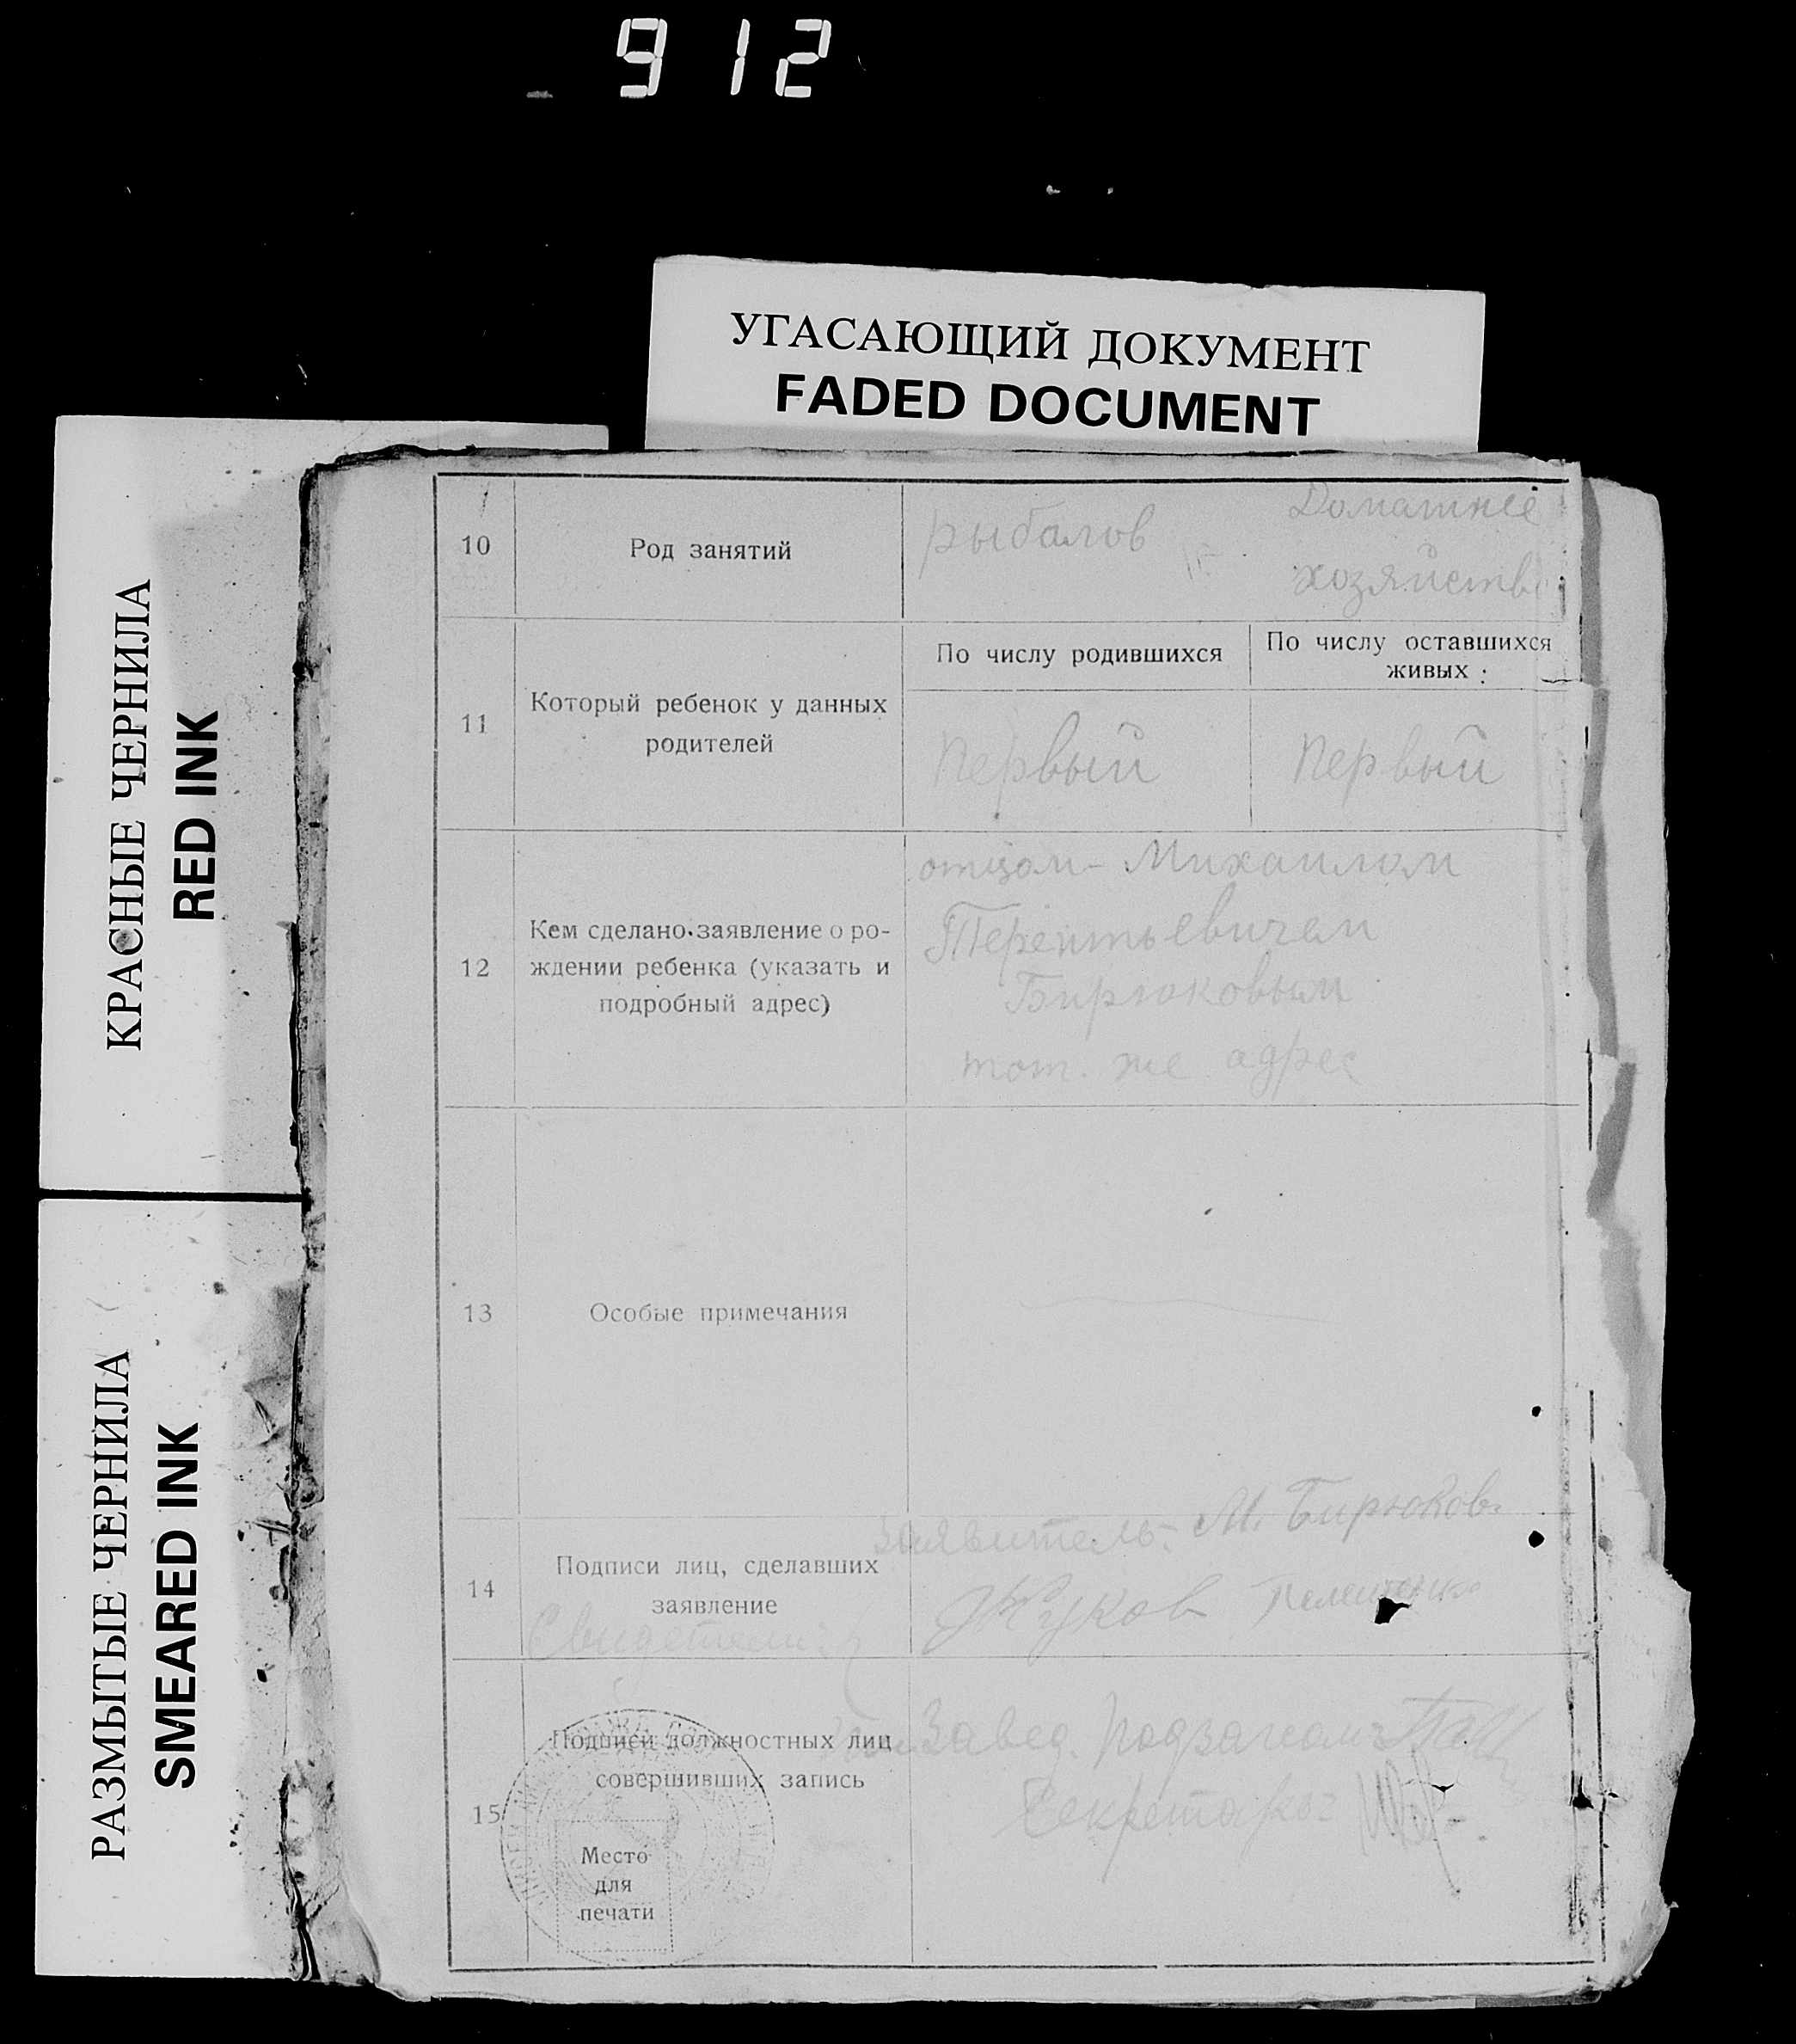 912
УГАСАЮЩИЙ ДОКУМЕНТ
FADED DOCUMENT
КРАСНЫЕ ЧЕРНИЛА
RED INK
РАЗМЫТЫЕ ЧЕРНИЛА
SMEARED INK
10
Род занятий
рыбалов
Домашнее
хозяйство
11
Который ребенок у данных
родителей
По числу родившихся
По числу оставшихся
живых :
Первый
Первый
12
Кем сделано заявление о ро-
ждении ребенка (указать и
подробный адрес)
отцом - Михаилом
Терентьевичем
Бирюковым
тот же адрес
13
Особые примечания
14
Подписи лиц, сделавших
заявление
Свидетели:
Заявитель:- М. Бирюков
Жуков
15
Подписи должностных лиц
совершивших запись
Место
для
печати
Завед.
Секретарь: